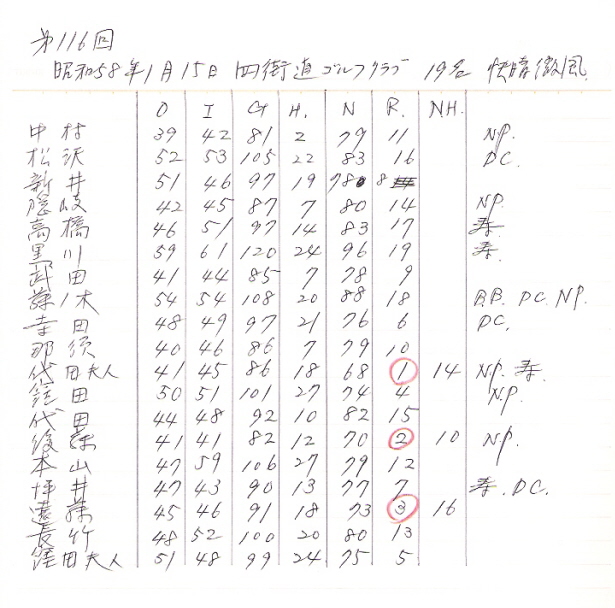 第116回
昭和58年1月15日 四街道ゴルフクラブ 19名 快晴微風
O I G H. N R. NH.
中村 39 42 81 2 79 11 NP.
松沢 52 53 105 22 83 16 DC.
新井 51 46 97 19 78 8
隠岐 42 45 87 7 80 14 NP
高橋 46 51 97 14 83 17 寿.
黒川 59 61 120 24 96 19 寿.
武田 41 44 85 7 78 9
54 54 108 20 88 18 B.B. DC. NP.
幸田 48 49 97 21 76 6 DC.
那須 40 46 86 7 79 10
代田夫人 41 45 86 18 68 1 14 NP. 寿.
窪田 50 51 101 27 74 4 NP.
代田 44 48 92 10 82 15
後藤 41 41 82 12 70 2 10 NP.
本山 47 59 106 27 79 12
坪井 47 43 90 13 77 7 寿. DC.
遠藤 45 46 91 18 73 3 16
長竹 48 52 100 20 80 13
窪田夫人 51 48 99 24 75 5